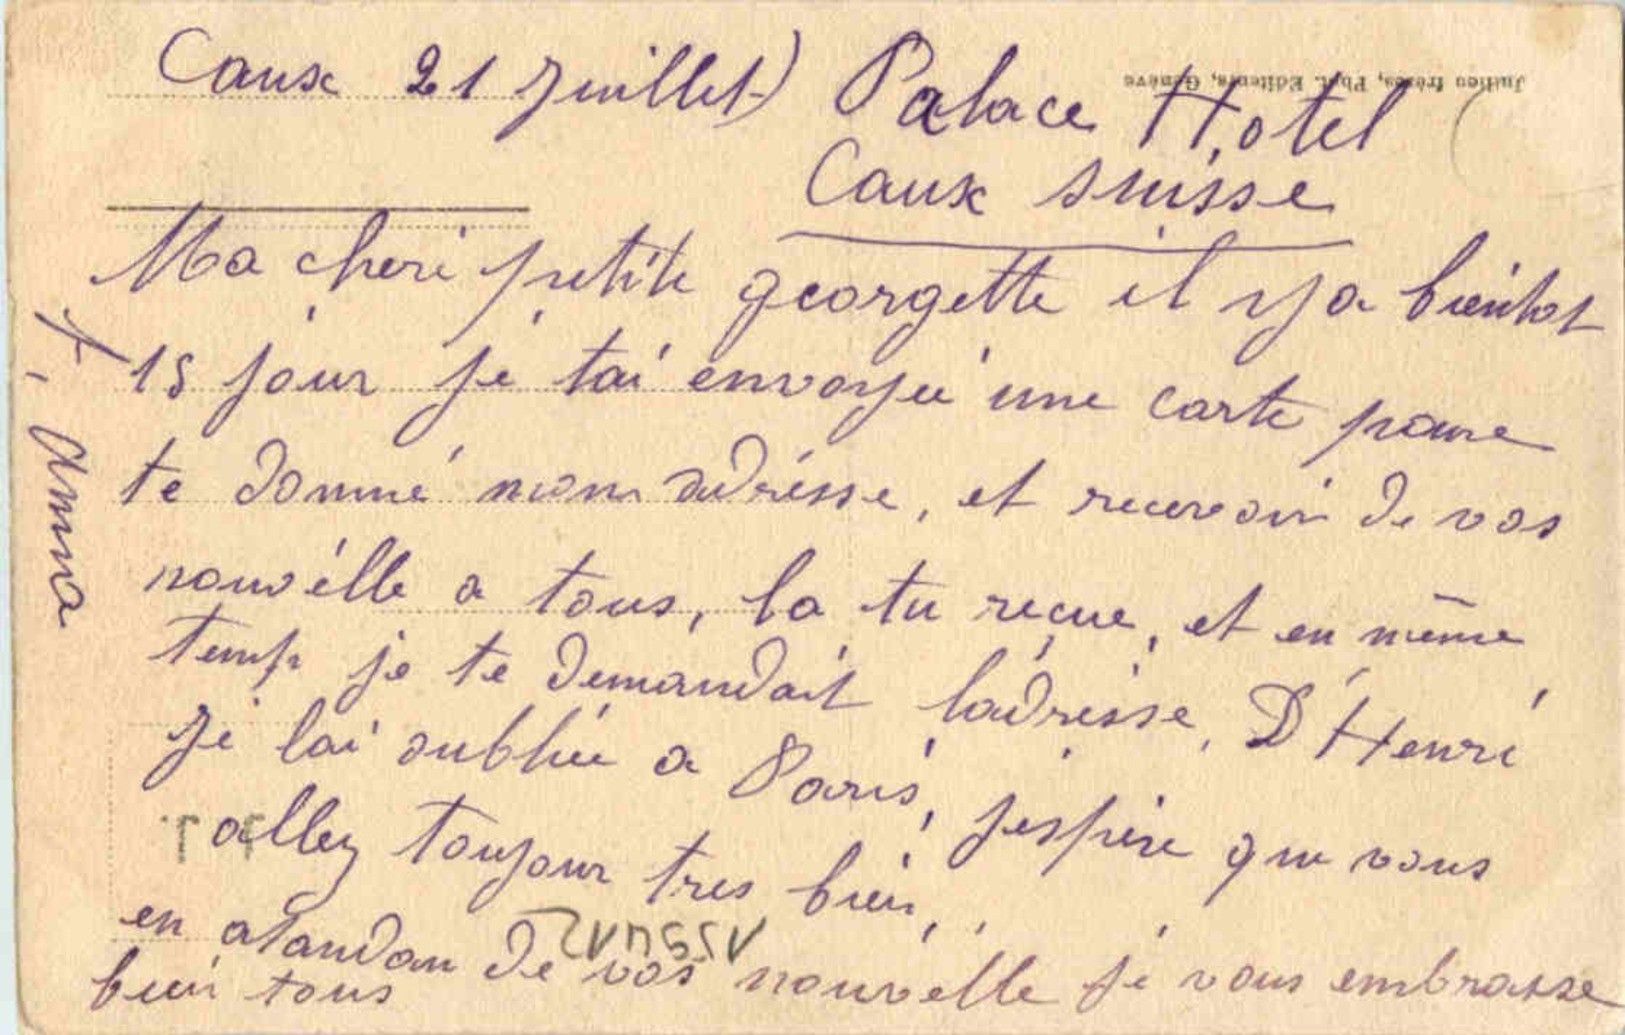 Caux 21 Juillet) Palace Hotel
Caux suisse
Jullien frères, Phot. Editeurs, Genève
Ma cheri petite georgette il y a bientot
15 jour je tai envoyée une carte poure
te donné mon adrésse, et recevoir de vos
nouvélle a tous, la tu reçue, et en même
temp je te demandait ladrésse, D'Henri
je lai oubliée a Paris, jespère que vous
allez toujour tres bien,
en atandan de vos nouvélle je vous embrasse
bien tous
Anna